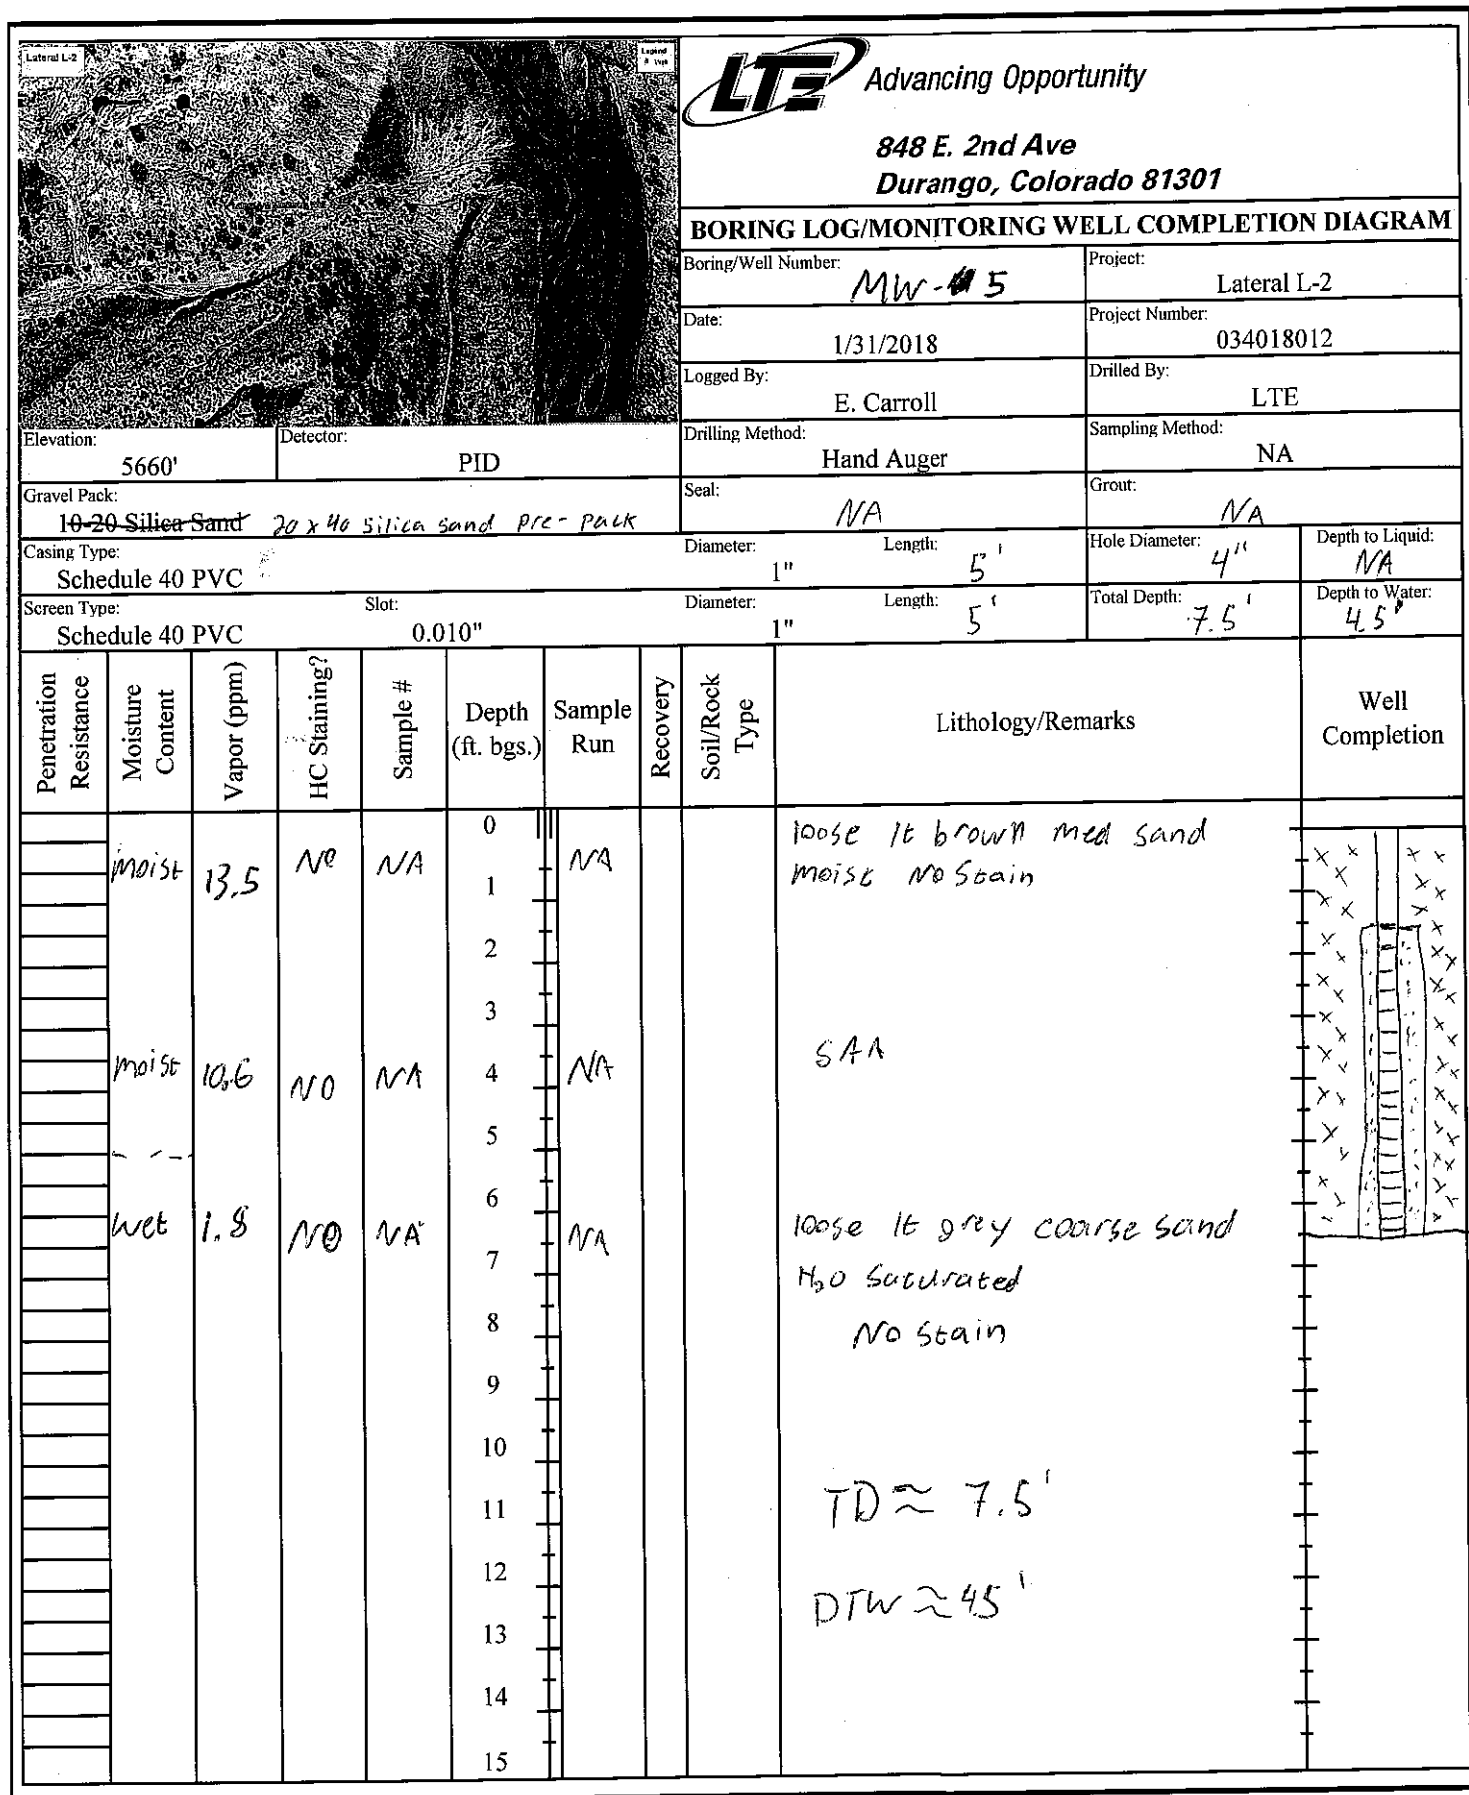 Lateral L-2
Legend
LTE Advancing Opportunity
848 E. 2nd Ave
Durango, Colorado 81301
BORING LOG/MONITORING WELL COMPLETION DIAGRAM
Boring/Well Number: MW-5
Project: Lateral L-2
Date: 1/31/2018
Project Number: 034018012
Logged By: E. Carroll
Drilled By: LTE
Elevation: 5660'
Detector: PID
Drilling Method: Hand Auger
Sampling Method: NA
Gravel Pack: 10-20 Silica Sand 20 x 40 silica sand pre-pack
Seal: NA
Grout: NA
Casing Type: Schedule 40 PVC
Diameter: 1"
Length: 5'
Hole Diameter: 4"
Depth to Liquid: NA
Screen Type: Schedule 40 PVC
Slot: 0.010"
Diameter: 1"
Length: 5'
Total Depth: 7.5'
Depth to Water: 4.5'
Penetration Resistance
Moisture Content
Vapor (ppm)
HC Staining?
Sample #
Depth (ft. bgs.)
Sample Run
Recovery
Soil/Rock Type
Lithology/Remarks
Well Completion
0 loose lt brown med sand
moist 13.5 NO NA NA moist No Stain
1
2
3
moist 10.6 NO NA 4 NA SAA
5
6
wet 1.8 NO NA NA loose lt grey coarse sand
7
H2O Saturated
8 No Stain
9
10
TD ≈ 7.5'
11
12
DTW ≈ 45'
13
14
15